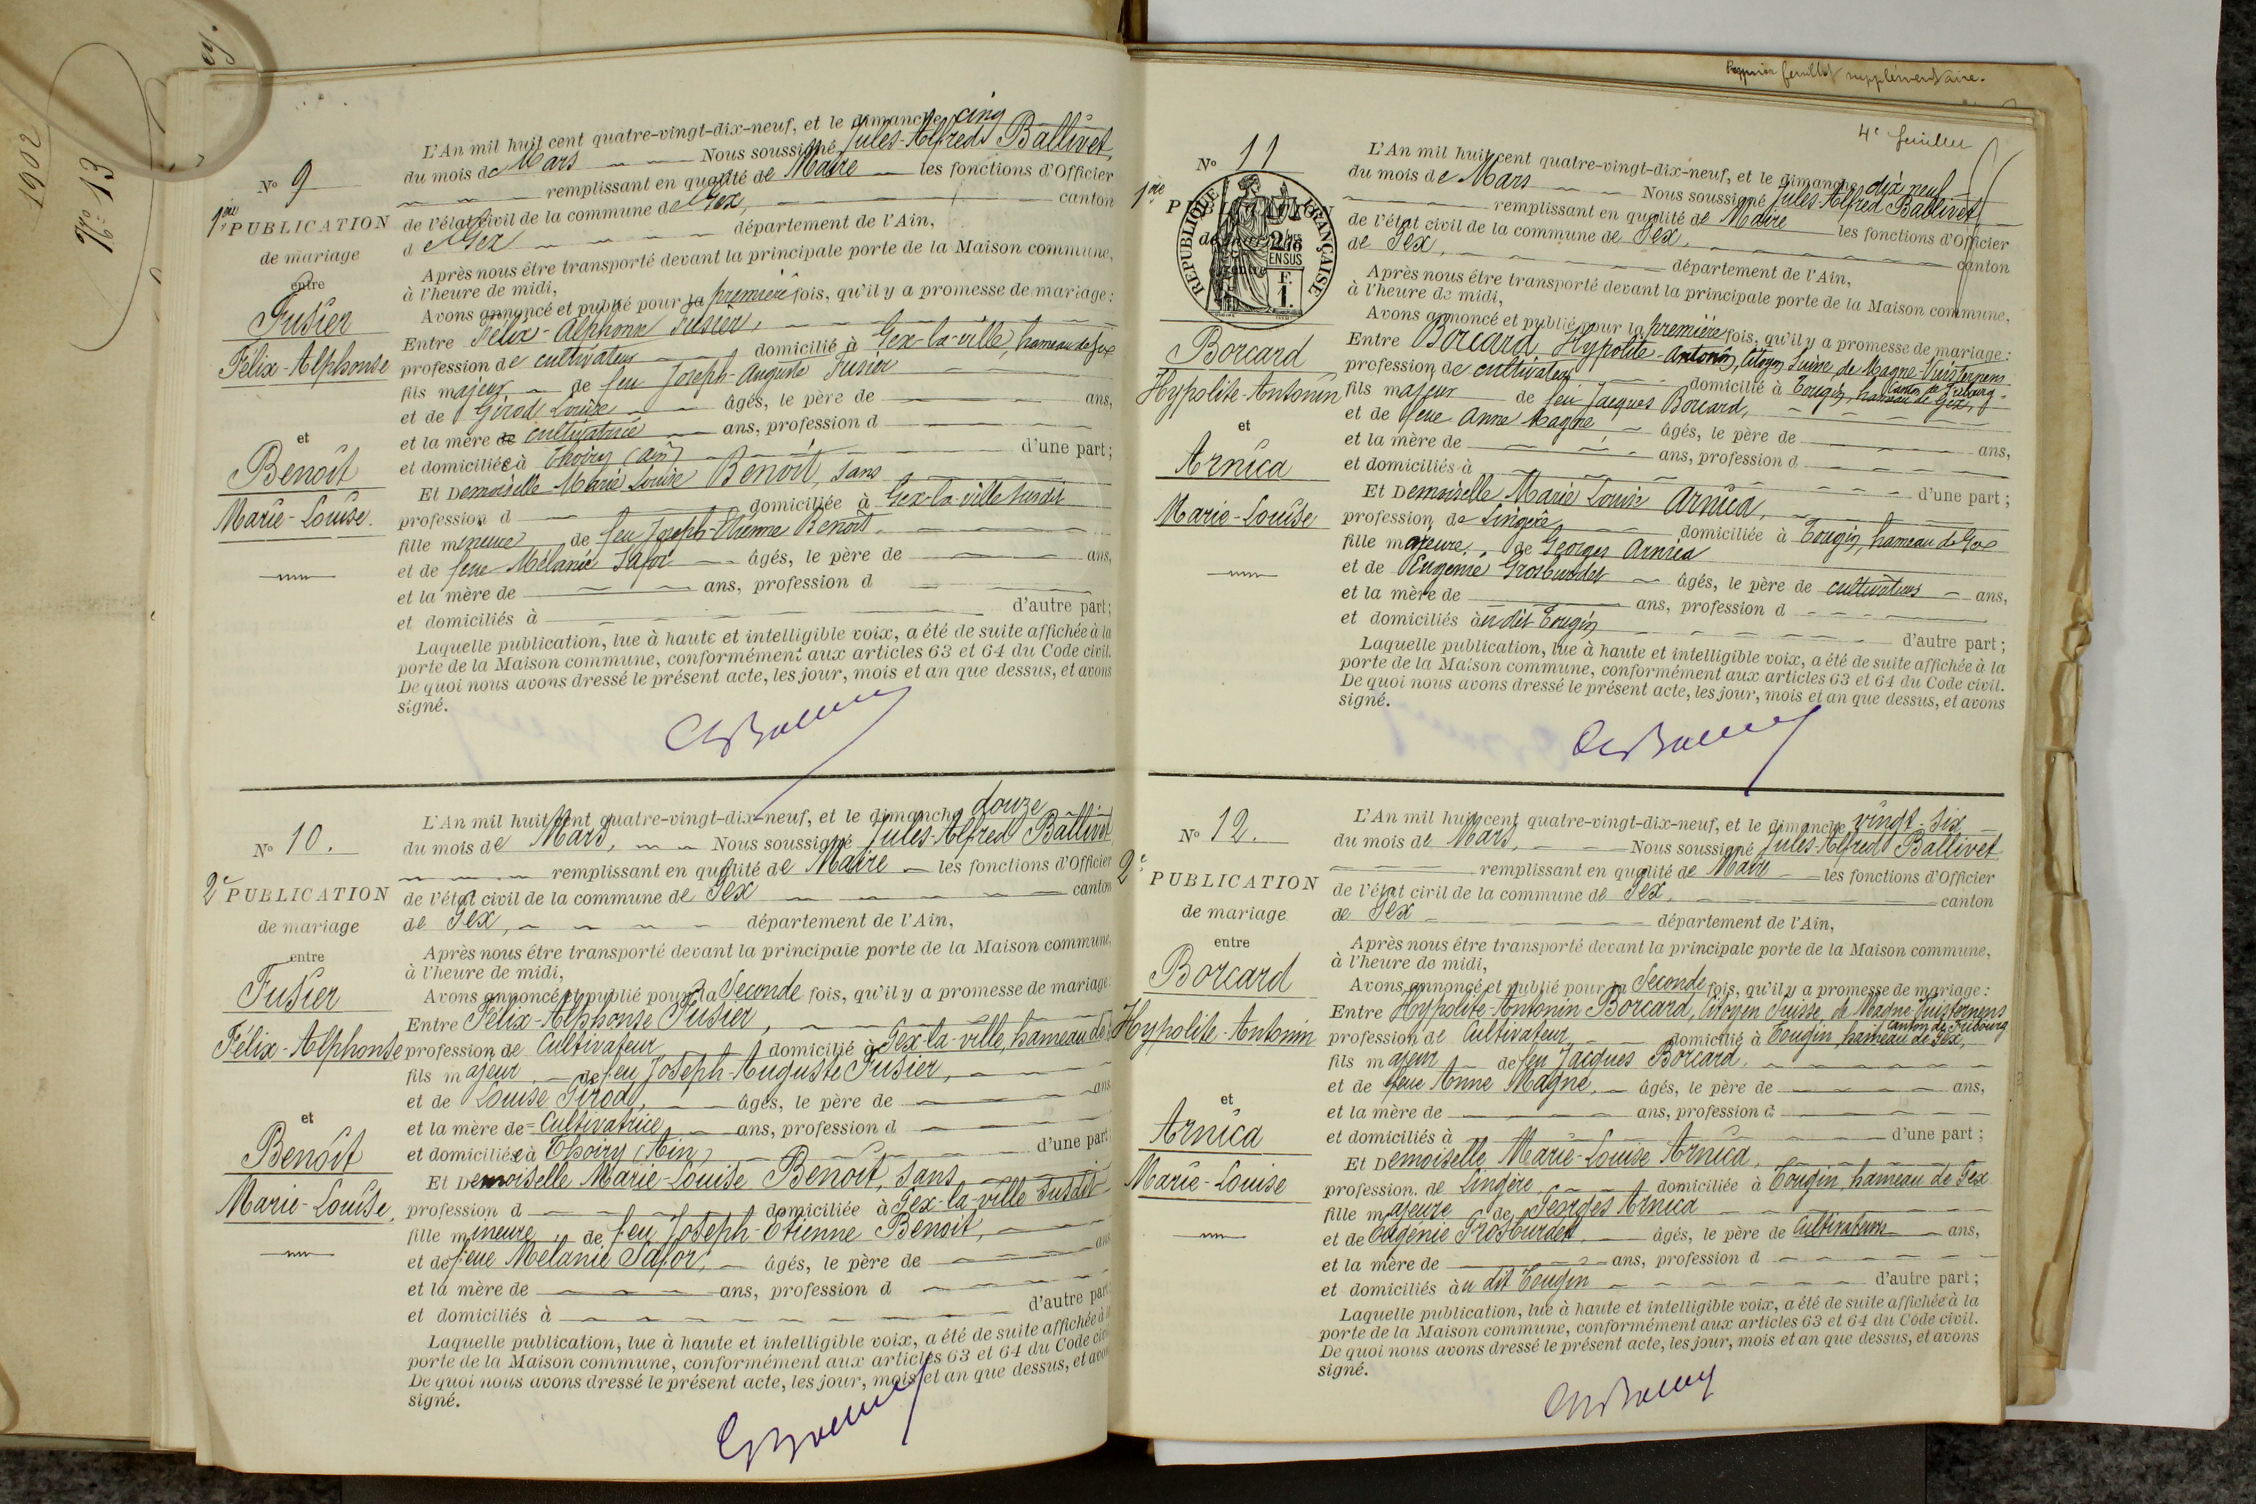 1902
N° 13
N° 9
1ère PUBLICATION
de mariage
entre
Fusier
Félix-Alphonse
et
Benoît
Marie-Louise.
L'An mil huit cent quatre-vingt-dix-neuf, et le dimanche cinq
du mois de Mars Nous soussigné Jules-Alfred Ballivet,
remplissant en qualité de Maire les fonctions d'Officier
de l'état civil de la commune de Gex, canton
d e Gex département de l'Ain,
Après nous être transporté devant la principale porte de la Maison commune,
à l'heure de midi,
Avons annoncé et publié pour la première fois, qu'il y a promesse de mariage:
Entre Félix-Alphonse Fusier,
profession de cultivateur domicilié à Gex-la-ville, hameau de Gex
fils majeur de feu Joseph-Auguste Fusier
et de Girod Louise âgés, le père de ans,
et la mère de cultivatrice ans, profession d
et domiciliée à Thoiry (Ain) d'une part;
Et Demoiselle Marie Louise Benoît, sans
profession d domiciliée à Gex-la-ville susdit
fille mineure de feu Joseph-Etienne Benoît,
et de feue Mélanie Safor âgés, le père de ans,
et la mère de ans, profession d
et domiciliés à d'autre part;
Laquelle publication, lue à haute et intelligible voix, a été de suite affichée à la
porte de la Maison commune, conformément aux articles 63 et 64 du Code civil.
De quoi nous avons dressé le présent acte, les jour, mois et an que dessus, et avons
signé.
N° 10.
2e PUBLICATION
de mariage
entre
Fusier
Félix-Alphonse
et
Benoît
Marie-Louise,
L'An mil huit cent quatre-vingt-dix-neuf, et le dimanche douze
du mois de Mars, Nous soussigné Jules-Alfred Ballivet
remplissant en qualité de Maire les fonctions d'Officier
de l'état civil de la commune de Gex canton
de Gex, département de l'Ain,
Après nous être transporté devant la principale porte de la Maison commune,
à l'heure de midi,
Avons annoncé et publié pour la Seconde fois, qu'il y a promesse de mariage:
Entre Félix-Alphonse Fusier,
profession de Cultivateur domicilié à Gex-la-ville, hameau de
fils majeur de feu Joseph-Auguste Fusier,
et de Louise Girod, âgés, le père de ans
et la mère de Cultivatrice ans, profession d
et domiciliée à Thoiry (Ain) d'une part;
Et Demoiselle Marie-Louise Benoît, sans
profession d domiciliée à Gex-la-ville susdit
fille mineure, de feu Joseph-Etienne Benoît,
et de feue Mélanie Safor, âgés, le père de ans
et la mère de ans, profession d
et domiciliés à d'autre part
Laquelle publication, lue à haute et intelligible voix, a été de suite affichée à la
porte de la Maison commune, conformément aux articles 63 et 64 du Code civil
De quoi nous avons dressé le présent acte, les jour, mois et an que dessus, et avons
signé.
feuillet supplémentaire.
4e feuillet
N° 11
1ère
RÉPUBLIQUE FRANÇAISE
2/10
EN SUS
F.
1.
Borcard
Hypolite-Antonin
et
Arnica
Marie-Louise
L'An mil huit cent quatre-vingt-dix-neuf, et le dimanche dix neuf
du mois de Mars Nous soussigné Jules-Alfred Ballivet
remplissant en qualité de Maire les fonctions d'Officier
de l'état civil de la commune de Gex, canton
de Gex, département de l'Ain,
Après nous être transporté devant la principale porte de la Maison commune,
à l'heure de midi,
Avons annoncé et publié pour la première fois, qu'il y a promesse de mariage:
Entre Borcard, Hypolite-Antonin, Citoyen Suisse de Magne-Vuisternens
Canton de Fribourg.
profession de cultivateur domicilié à Tougin, hameau de Gex,
fils majeur de feu Jacques Borcard,
et de feue Anne Magne, âgés, le père de ans,
et la mère de ans, profession d
et domiciliés à d'une part;
Et Demoiselle Marie Louise Arnica,
profession de Lingère domiciliée à Tougin, hameau de Gex
fille majeure, de Georges Arnica
et de Eugénie Grosburdet âgés, le père de cultivateurs ans,
et la mère de ans, profession d
et domiciliés àu dit Tougin d'autre part;
Laquelle publication, lue à haute et intelligible voix, a été de suite affichée à la
porte de la Maison commune, conformément aux articles 63 et 64 du Code civil.
De quoi nous avons dressé le présent acte, les jour, mois et an que dessus, et avons
signé.
N° 12.
2e PUBLICATION
de mariage
entre
Borcard
Hypolite-Antonin
et
Arnica
Marie-Louise
L'An mil huit cent quatre-vingt-dix-neuf, et le dimanche vingt-six
du mois de Mars, Nous soussigné Jules-Alfred Ballivet
remplissant en qualité de Maire les fonctions d'Officier
de l'état civil de la commune de Gex, canton
de Gex département de l'Ain,
Après nous être transporté devant la principale porte de la Maison commune,
à l'heure de midi,
Avons annoncé et publié pour la Seconde fois, qu'il y a promesse de mariage:
Entre Hypolite-Antonin Borcard, Citoyen Suisse, de Magne-Vuisternens
Canton de Fribourg
profession de Cultivateur domicilié à Tougin, hameau de Gex,
fils majeur de feu Jacques Borcard,
et de feue Anne Magne, âgés, le père de ans,
et la mère de ans, profession d
et domiciliés à d'une part;
Et Demoiselle Marie-Louise Arnica,
profession de Lingère, domiciliée à Tougin, hameau de Gex
fille majeure de Georges Arnica
et de Eugénie Grosburdet, âgés, le père de Cultivateurs ans,
et la mère de ans, profession d
et domiciliés àu dit Tougin d'autre part;
Laquelle publication, lue à haute et intelligible voix, a été de suite affichée à la
porte de la Maison commune, conformément aux articles 63 et 64 du Code civil.
De quoi nous avons dressé le présent acte, les jour, mois et an que dessus, et avons
signé.